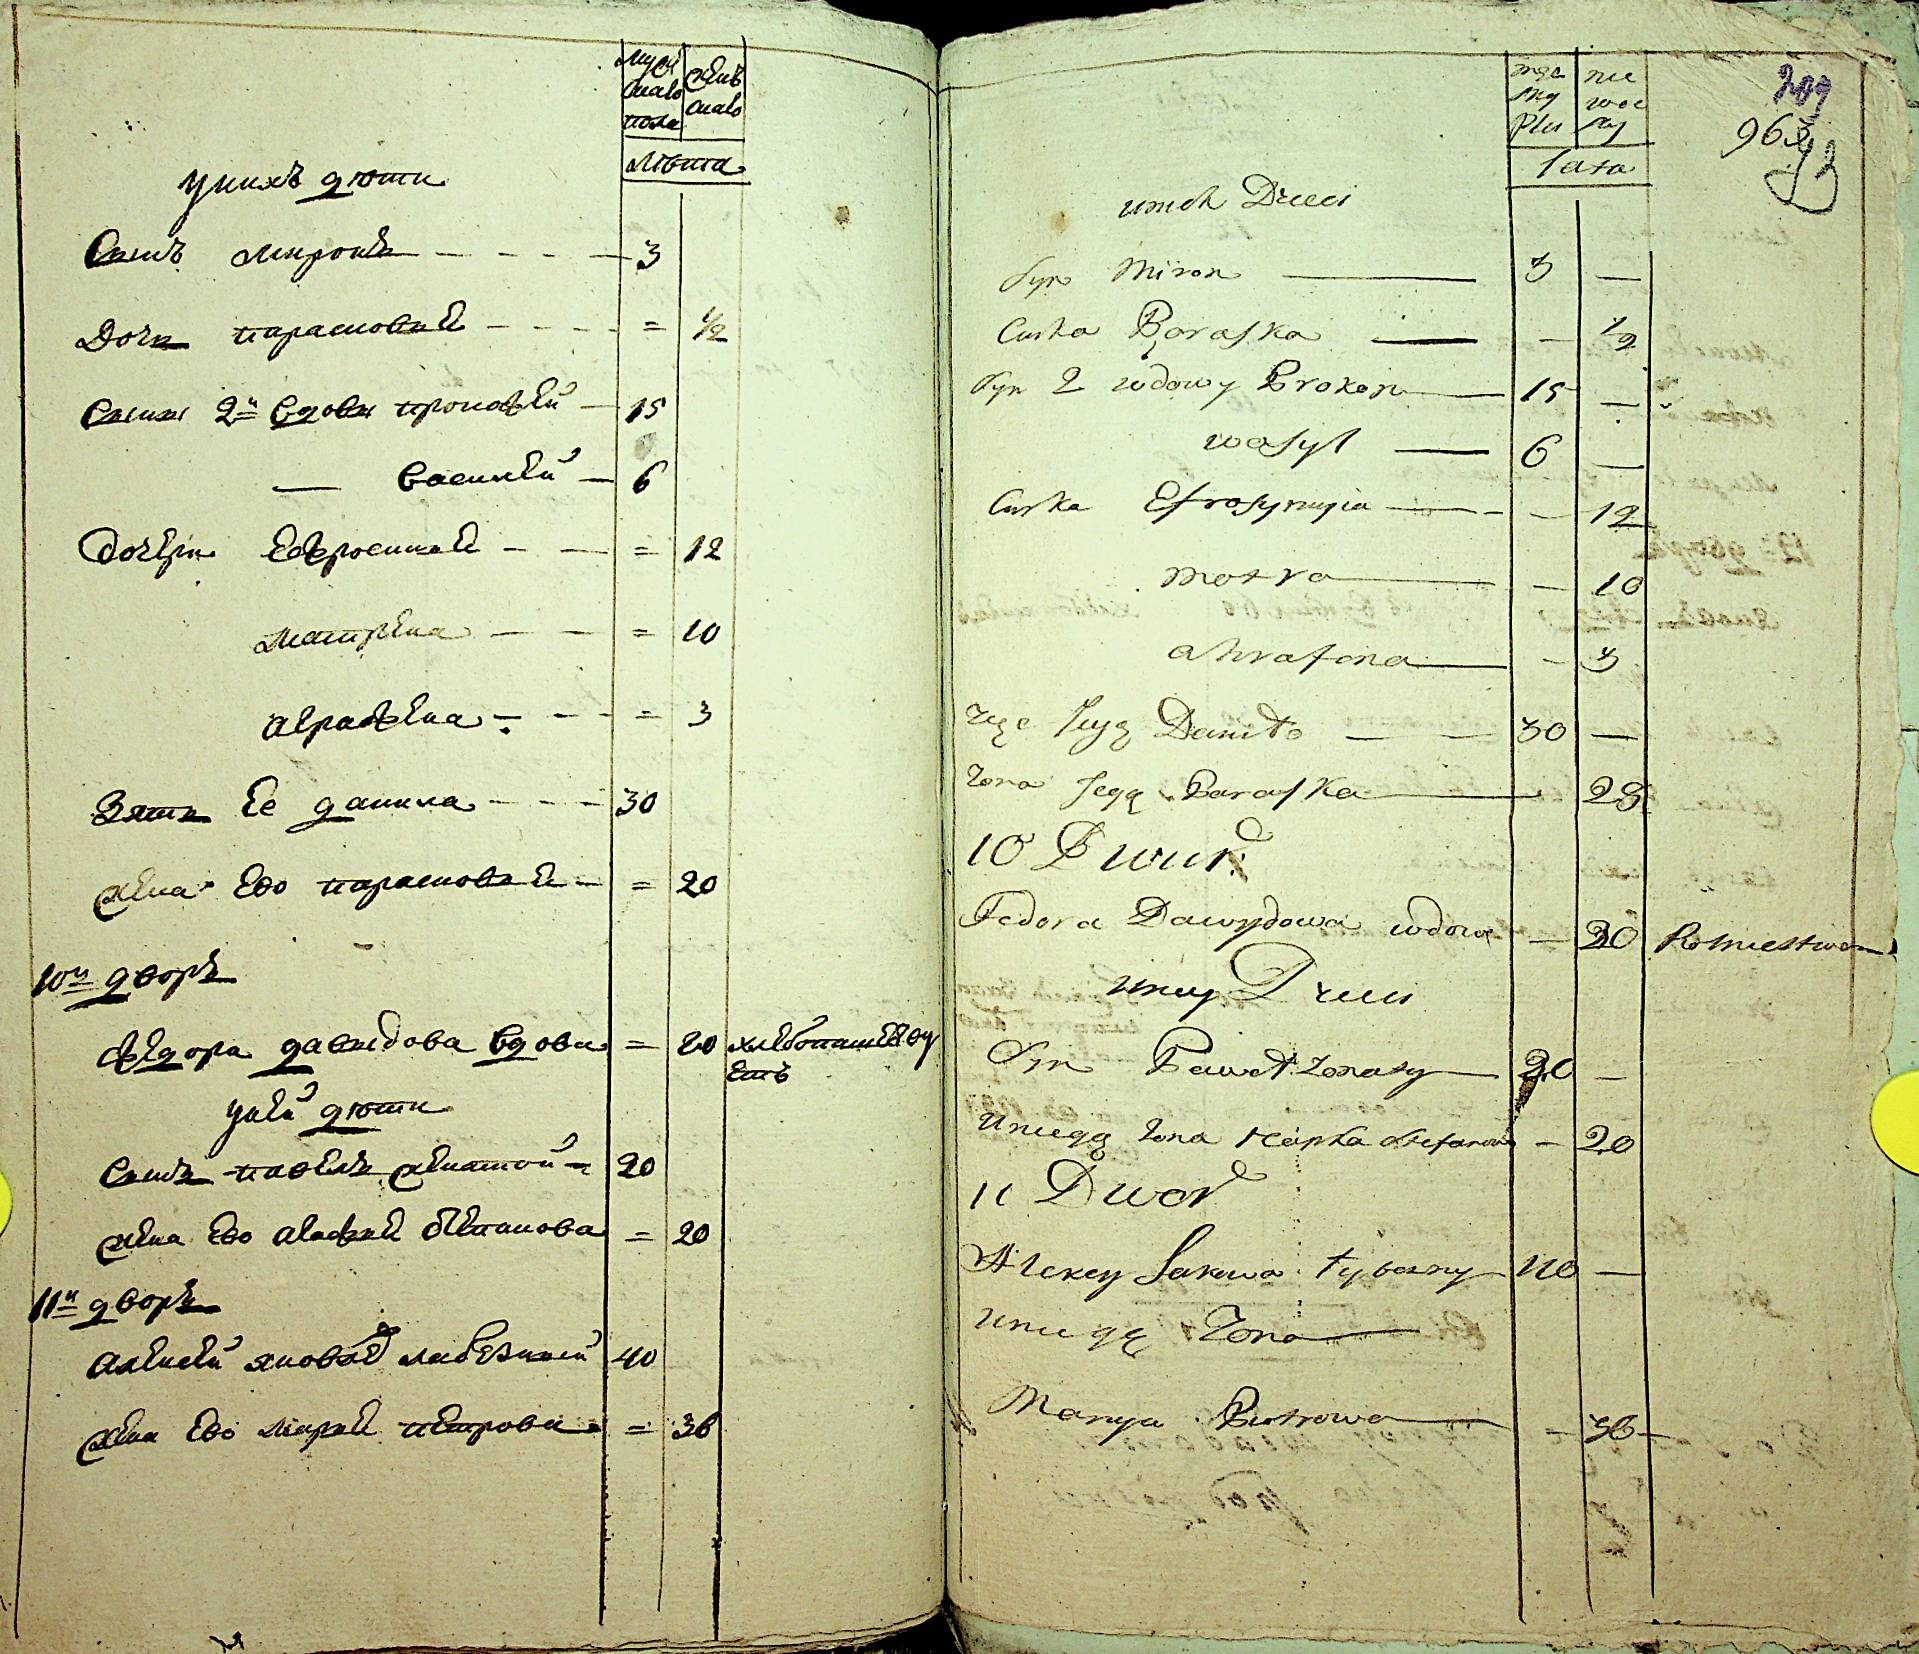 муск
скаго
пола
женъ
скаго
лѣта
у нихъ дѣти
Сынъ миронъ 3
Дочь парасковия = 1/2
Сыны 2й вдовы прокофей 15
— василей 6
Дочери Ефросиния = 12
матрена = 10
аграфена = 3
Зять Ее данила 30
жена Ево парасковия = 20
10й дворъ
Федора давыдова вдова = 20 хлебопашеству
етъ
у ней дѣти
Сынъ павелъ женатой 20
жена Ево агафия степанова = 20
11й дворъ
алексей яковлев 40
жена Ево мария петрова = 36
męs
kię
Płci
nie
wie
Lata
963
93
u nich Dzieci
Syn Miron 3 —
Curka Paraska — 1/2
Syn 2 wdowy Prokop 15 —
wasyl 6 —
Curka Efrosynnyia — 12
motra — 10
ahrafena — 3
Jeyą Daniło 30 —
żona Jegą Paraska 28
10 Dwur
Fedora Dawydowa wdowa — 20 Rolnictwo
u niey Dzieci
Syn Paweł żonaty 20 —
u niegą żona Hapka Stefanow — 20
11 Dwor
Alexey Jakowa 40 —
u niegą żona
Marya Piotrowa — 36